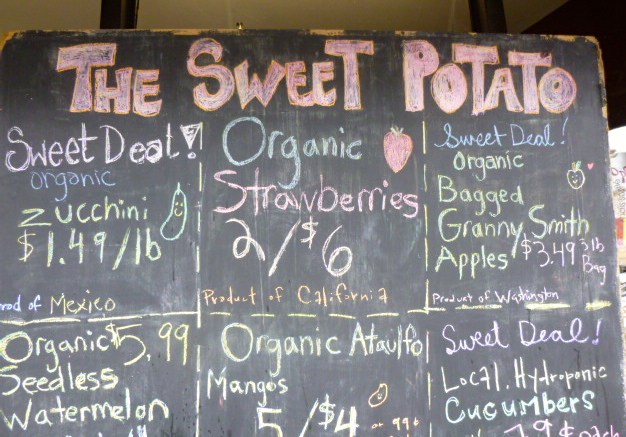 THE SWEET POTATO
Sweet Deal!
organic
zucchini
$1.49/lb
rod of Mexico
Organic
Strawberries
2/$6
Product of California
Sweet Deal!
Organic
Bagged
Granny Smith
Apples $3.49 3lb
Bag
Product of Washington
Organic $5.99
Seedless
Watermelon
Organic Ataulfo
Mangos
5/$4 or 99¢
Sweet Deal!
Local, Hydroponic
Cucumbers
79¢ each